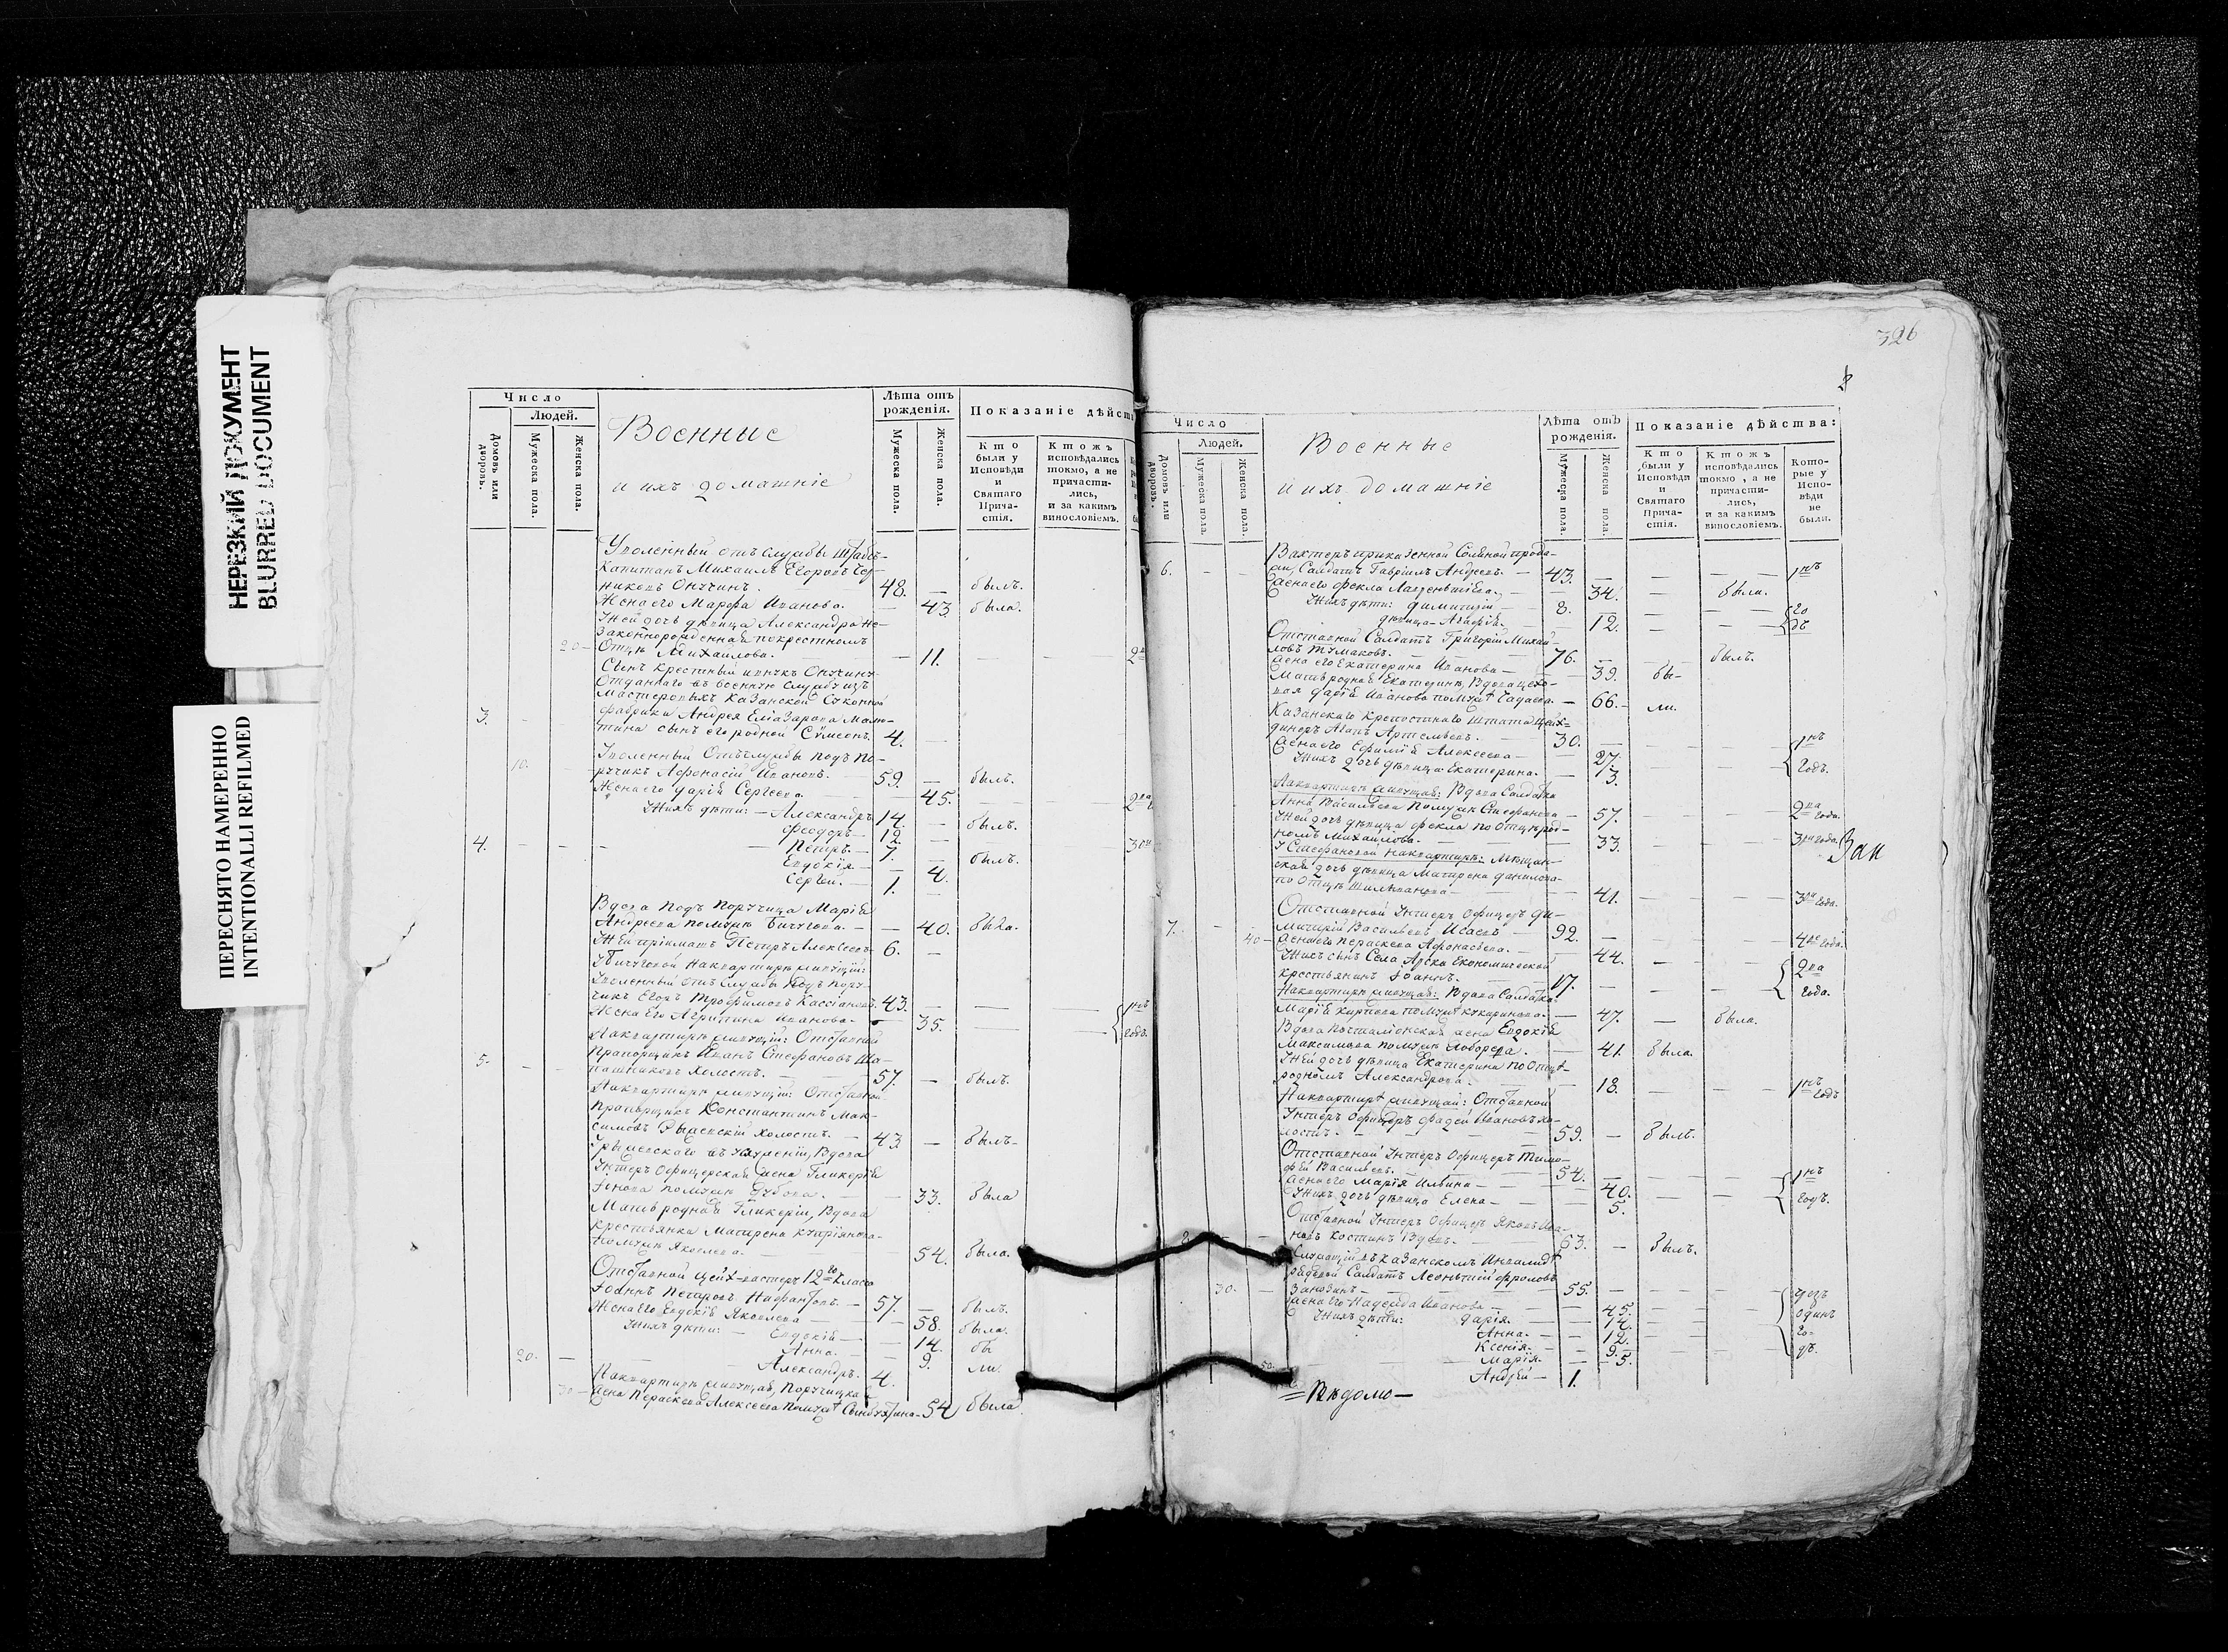 НЕРЕЗКИЙ ДОКУМЕНТ
BLURRED DOCUMENT
ПЕРЕСНЯТО НАМЕРЕННО
INTENTIONALLI REFILMED
Число
Людей.
Домовъ или дворовъ.
Мужеска пола.
Женска пола.
Военные
и ихъ домашніе
Лѣта отъ рожденія.
Мужеска пола.
Женска пола.
Показаніе дѣйст
Кто были у Исповѣди и Святаго Прича-стія.
Ктожъ исповѣдались токмо, а не причасти-лись, и за какимъ винословіемъ.
Уволенный отъ службы Штабсъ-
Капитанъ Михаилъ Егоровъ
Онучинъ. — 48. — былъ.
Жена его Марфа Иванова. — 43. была.
Ея дочь дѣвица Александра не-
законнорожденная по крестномъ
20 — Отцѣ Михаилова. — 11. — —
Сынъ крестный Онучину
Отданнаго въ военную службу изъ
Мастеровыхъ Казанской Суконной
3. фабрики Андрея Елiазарова
сынъ его родной Сѵмеонъ. 4. —
Уволенный Отъ службы Подъ По-
10. ручикъ Афонасій Ивановъ. — 59. — былъ.
Жена его Дарія Сергеева — 45. —
У нихъ дѣти: — Александръ 14. — былъ.
Феодоръ — 12.
4. — Петръ. — 7. — былъ.
Евдокія — 4.
Сергей. — 1.
Вдова Подъ Поручица Марія
Андреева по мужѣ Бичугова. — 40. была.
У ней Петръ Алексеевъ 6. —
У Бичуговой На квартирѣ живущій:
Уволенный отъ службы Подъ Пору-
чикъ Егоръ Трофимовъ Кассіановъ. 43. —
Жена Его Агрипина Иванова — 35. — годъ.
На квартирѣ живущій: Отставной
5. Прапорщикъ Иванъ Стефановъ Ша-
пашниковъ холостъ. — 57. — былъ.
На квартирѣ живущій: Отставной
Прапорщикъ Константинъ Мак-
симовъ Рыжевскій холостъ. — 43 — былъ.
У Рыжевскаго въ услуженіи, Вдова
Унтеръ Офицерская жена Гликерія
по мужѣ Дубова. — 33. была
Мать родная Гликеріи, Вдова
Крестьянка Матрена Купріянова
по мужѣ Яковлева — 54. была.
Отставной Цейх-вахтеръ 12го Класса
Іоаннъ Петровъ — 57. — былъ.
Жена Его Евдокія Яковлева — 58. была.
У нихъ дѣти: — Евдокія — 14. бы
Анна — 9. ли.
20. — Александръ. 4.
На квартирѣ живущая, Поручицкая
30 — жена Пераскева Алексеева — 54 была
326
Число
Людей.
Домовъ или дворовъ.
Мужеска пола.
Женска пола.
Военные
и ихъ домашніе
Лѣта отъ рожденія.
Мужеска пола.
Женска пола.
Показаніе дѣйства:
Кто были у Исповѣди и Святаго Прича-стія.
Ктожъ исповѣдались токмо, а не причасти-лись, и за какимъ винословіемъ.
Кото-рые у Испо-вѣди не были.
Вахтеръ при казенной Соляной прода-
6. жи, Салдатъ Гавріилъ Андреевъ. — 43. — — — 1нъ
Жена его Фекла Лаврентьева — 34. — были.
У нихъ дѣти: Димитрій — 8. — го
дѣвица — Агафія. — 12. — — дъ
Отставной Салдатъ Григорій Михай-
ловъ Тумаковъ. — 76. — — былъ.
Жена его Екатерина Иванова — 39. бы-
Мать родная Екатерины, Вдова цехо-
вая Дарія Иванова по мужѣ — 66. — ли.
Казанскаго Крепостнаго Штата
Агапъ Артемьевъ. — 30. — 1нъ
Жена его Ефимія Алексеева — 27. —
У нихъ дочь дѣвица Екатерина. — 3. годъ.
На квартирѣ живущая: Вдова Салдатка
Анна Васильева по мужѣ Стефанова — 57. — — 2ва года.
У ней дочь дѣвица Фекла по отцѣ род-
номъ Михайлова. — 33. — — 3ри года.
У Стефановой на квартирѣ: Мѣщан-
ская дочь дѣвица Матрена Данилова
по Отцѣ — 41. — — 3ри года.
Отставной Унтеръ Офицеръ Ди-
7. митрій Васильевъ Исаевъ — 92. —
40 — Жена его Пераскева Афонасьева — 44. — 4ре года.
У нихъ сынъ Села Арска Економической
крестьянинъ Іоаннъ. — 17. — — 2ва года.
На квартирѣ живущая: Вдова Салдатка
Марія Карпова по мужѣ — 47. — была.
Вдова Посталіонская жена Евдокія
Максимова по мужѣ — 41. была.
У ней дочь дѣвица Екатерина по Отцѣ
родномъ Александрова. — 18. — — 1нъ годъ
На квартирѣ живущій: Отставной
Унтеръ Офицеръ Фадей Ивановъ хо-
лостъ. — 59. — былъ.
Отставной Унтеръ Офицеръ Тимо-
фей Васильевъ. — 54. — 1нъ
Жена его Марія Ильина — 40. —
У нихъ дочь дѣвица Елена — 5. годъ.
Отставной Унтеръ Офицеръ Яковъ Ива-
8. новъ Костинъ Вдовъ. — 63. — былъ.
Служащій въ Казанскомъ Инвалидѣ
рядовой Салдатъ Леонтій Фроловъ
30. — 55. —
Жена Его Надежда Иванова — 45. одинъ
У нихъ дѣти: Дарія. — 14.
Анна. — 12. го-
Ксенія. — 9. дъ.
50. Марія. — 5.
Андрей — 1.
= Вѣдомо —